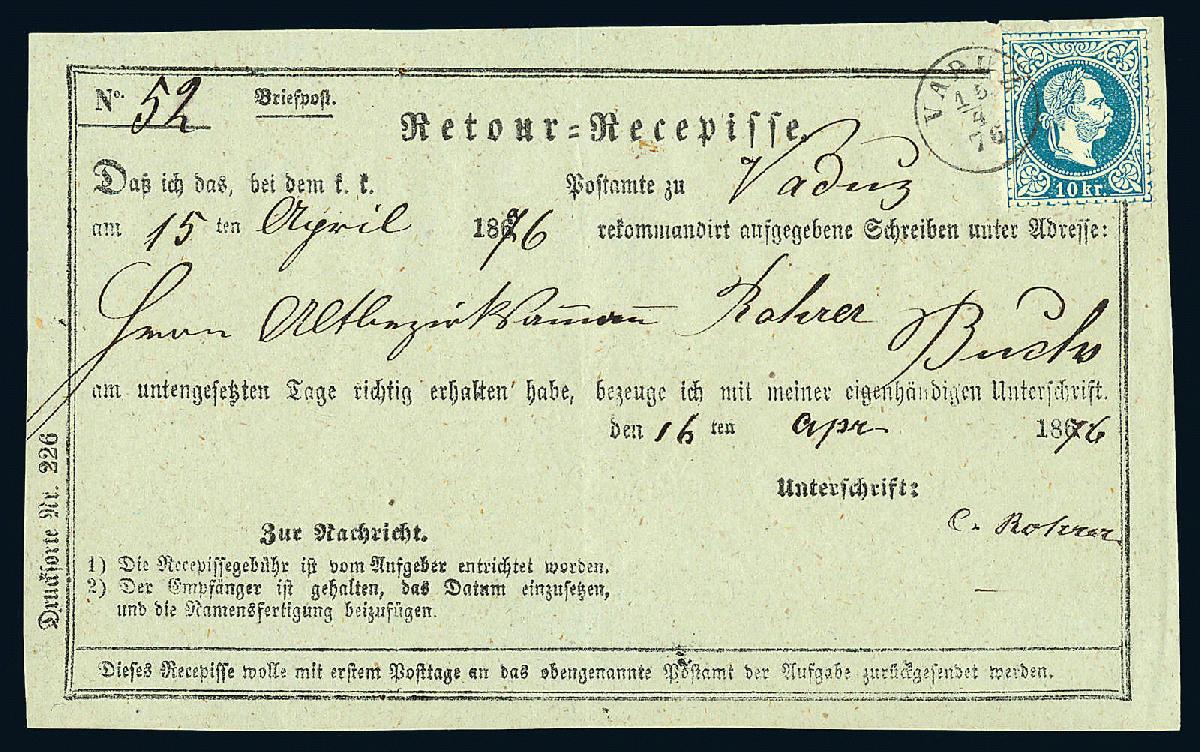 No. 52 Briefpost.
Retour-Recepisse.
VADUZ
15
4
76
10 kr.
Daß ich das, bei dem k. k. Postamte zu Vaduz
am 15 ten April 1876 rekommandirt aufgegebene Schreiben unter Adresse:
Herrn Altbezirksammann Rohrer Buchs
am untengesetzten Tage richtig erhalten habe, bezeuge ich mit meiner eigenhändigen Unterschrift.
den 16 ten Apr. 1876
Unterschrift:
C. Rohrer
Zur Nachricht.
1) Die Recepissegebühr ist vom Aufgeber entrichtet worden.
2) Der Empfänger ist gehalten, das Datum einzusetzen,
und die Namensfertigung beizufügen.
Dieses Recepisse wolle mit erstem Posttage an das obengenannte Postamt der Aufgabe zurückgesendet werden.
Drucksorte Nr. 226